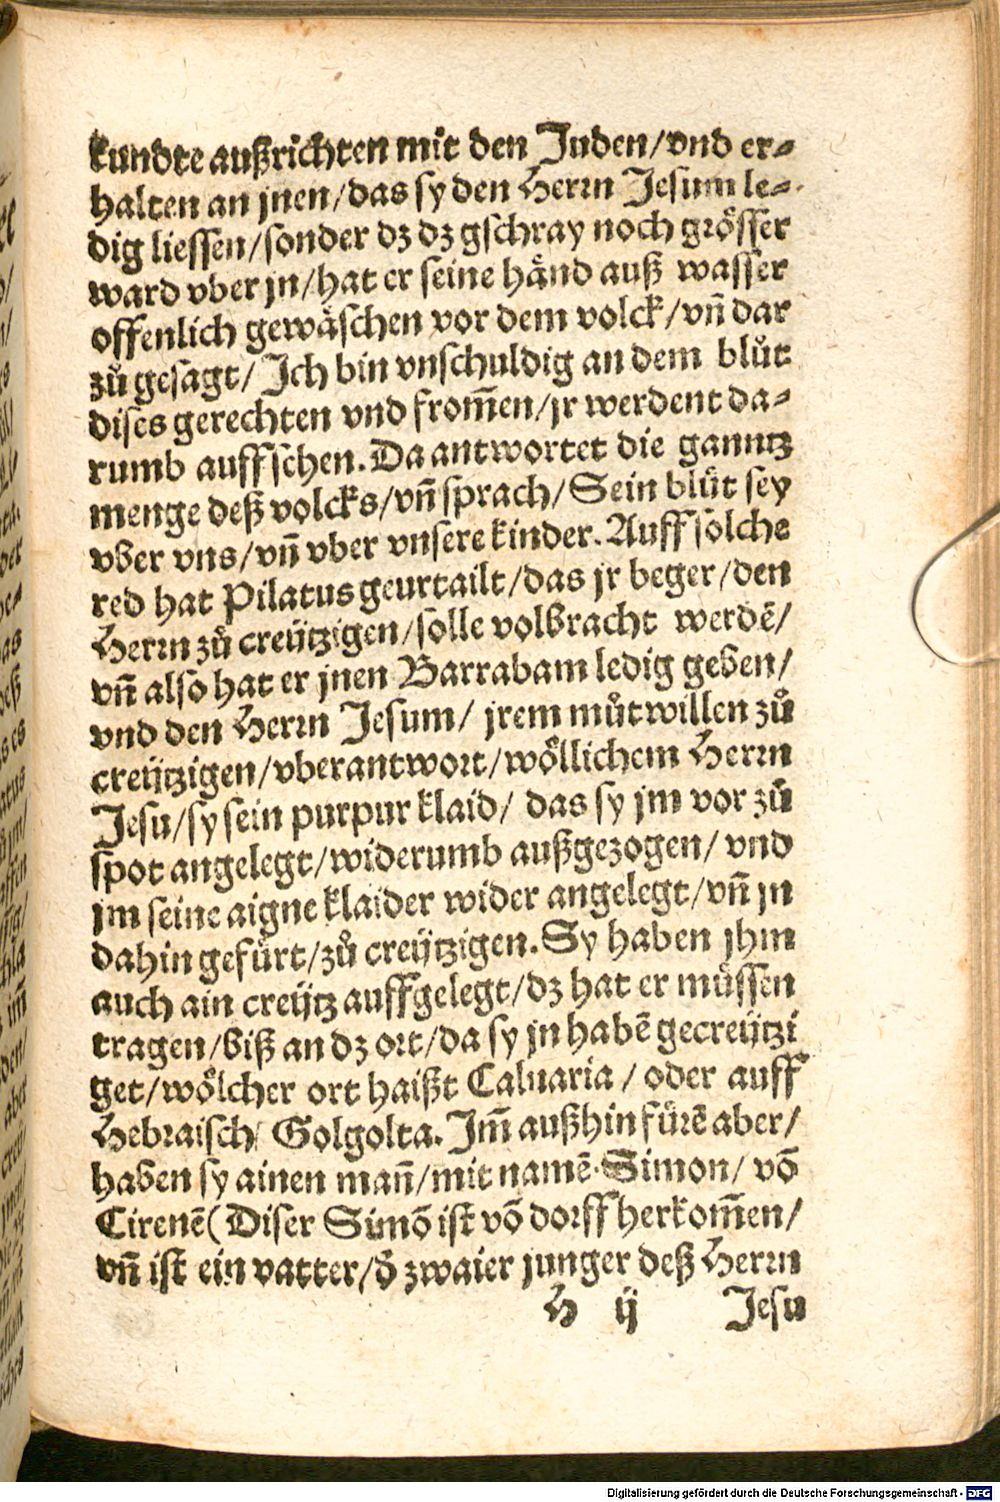 kundte außrichten mit den Juden/vnd er⸗
halten an jnen/das sy den Herrn Jesum le⸗
dig liessen/sonder dz dz gschray noch grösser
ward vber jn/hat er seine händ auß wasser
offenlich gewäschen vor dem volck/vn̄ dar
zů gesagt/ Jch bin vnschuldig an dem blůt
dises gerechten vnd from̄en/jr werdent da⸗
rumb auffsehen. Da antwortet die ganntz
menge deß volcks/vn̄ sprach/Sein blůt sey
vber vns/vn̄ vber vnsere kinder. Auff solche
red hat Pilatus geurtailt/das jr beger/den
Herrn zů creütziigen/solle volbracht werdē/
vn̄ also hat er jnen Barrabam ledig geben/
vnd den Herrn Jesum/ jrem můtwillen zů
creützigen/vberantwort/wöllichem Herrn
Jesu/sy sein purpur klaid/ das sy jm vor zů
spot angelegt/widerumb außgezogen/ vnd
jm seine aigne klaider wider angelegt/vn̄ jn
dahin gefürt/zů creützigen. Sy haben jhm
auch ain creütz auffgelegt/dz hat er müssen
tragen/biß an dz ort/da sy jn habē gecreützi
get/wölcher ort haißt Caluaria / oder auff
Hebraisch/ Golgolta. Jm̄ außhin fürē aber/
haben sy ainen man̄/mit namē Simon/ vō
Cirenē(Diser Simō ist vō dorff herkom̄en/
vn̄ ist ein vatter/d̄ zwaier junger deß Herrn
H ij Jesu
Digitalisierung gefördert durch die Deutsche Forschungsgemeinschaft - DFG